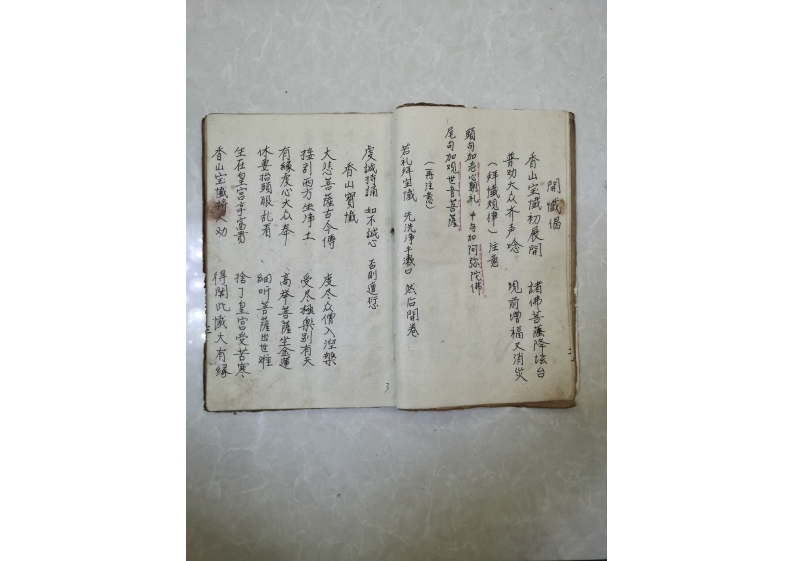 開懺偈
香山宝懺初展開 諸佛菩薩降坛台
普劝大众齐声唸 现前增福又消災
（拜懺规律）注意
頭句加志心朝礼 中句加阿弥陀佛
尾句加观世音菩薩
（再注意）
若礼拜宝懺 先洗浄手漱口 然后開卷
虔誠持誦 如不誠心 否則進愆
香山寶懺
大悲菩薩古今傳 度尽众僧入涅槃
接引西方坐净土 受尽極樂别有天
有緣虔心大众奉 高举菩薩坐金蓮
休要抬頭眼乱看 細听菩薩出世难
生在皇宫享富貴 捨了皇宫受苦寒
香山宝懺将人劝 得聞此懺大有緣
3
二